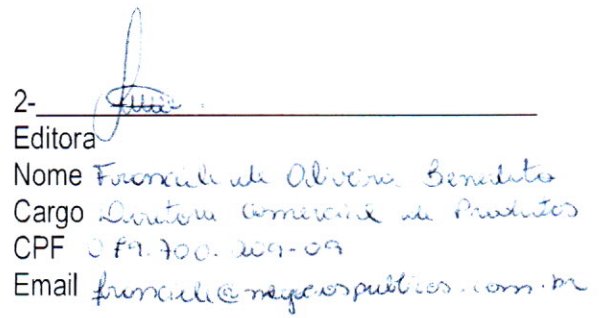 2-
Editora
Nome Franciele de Oliveira Benedito
Cargo Diretora Comercial de Produtos
CPF 700. 009-09
Email franciele@negociospublicos.com.br